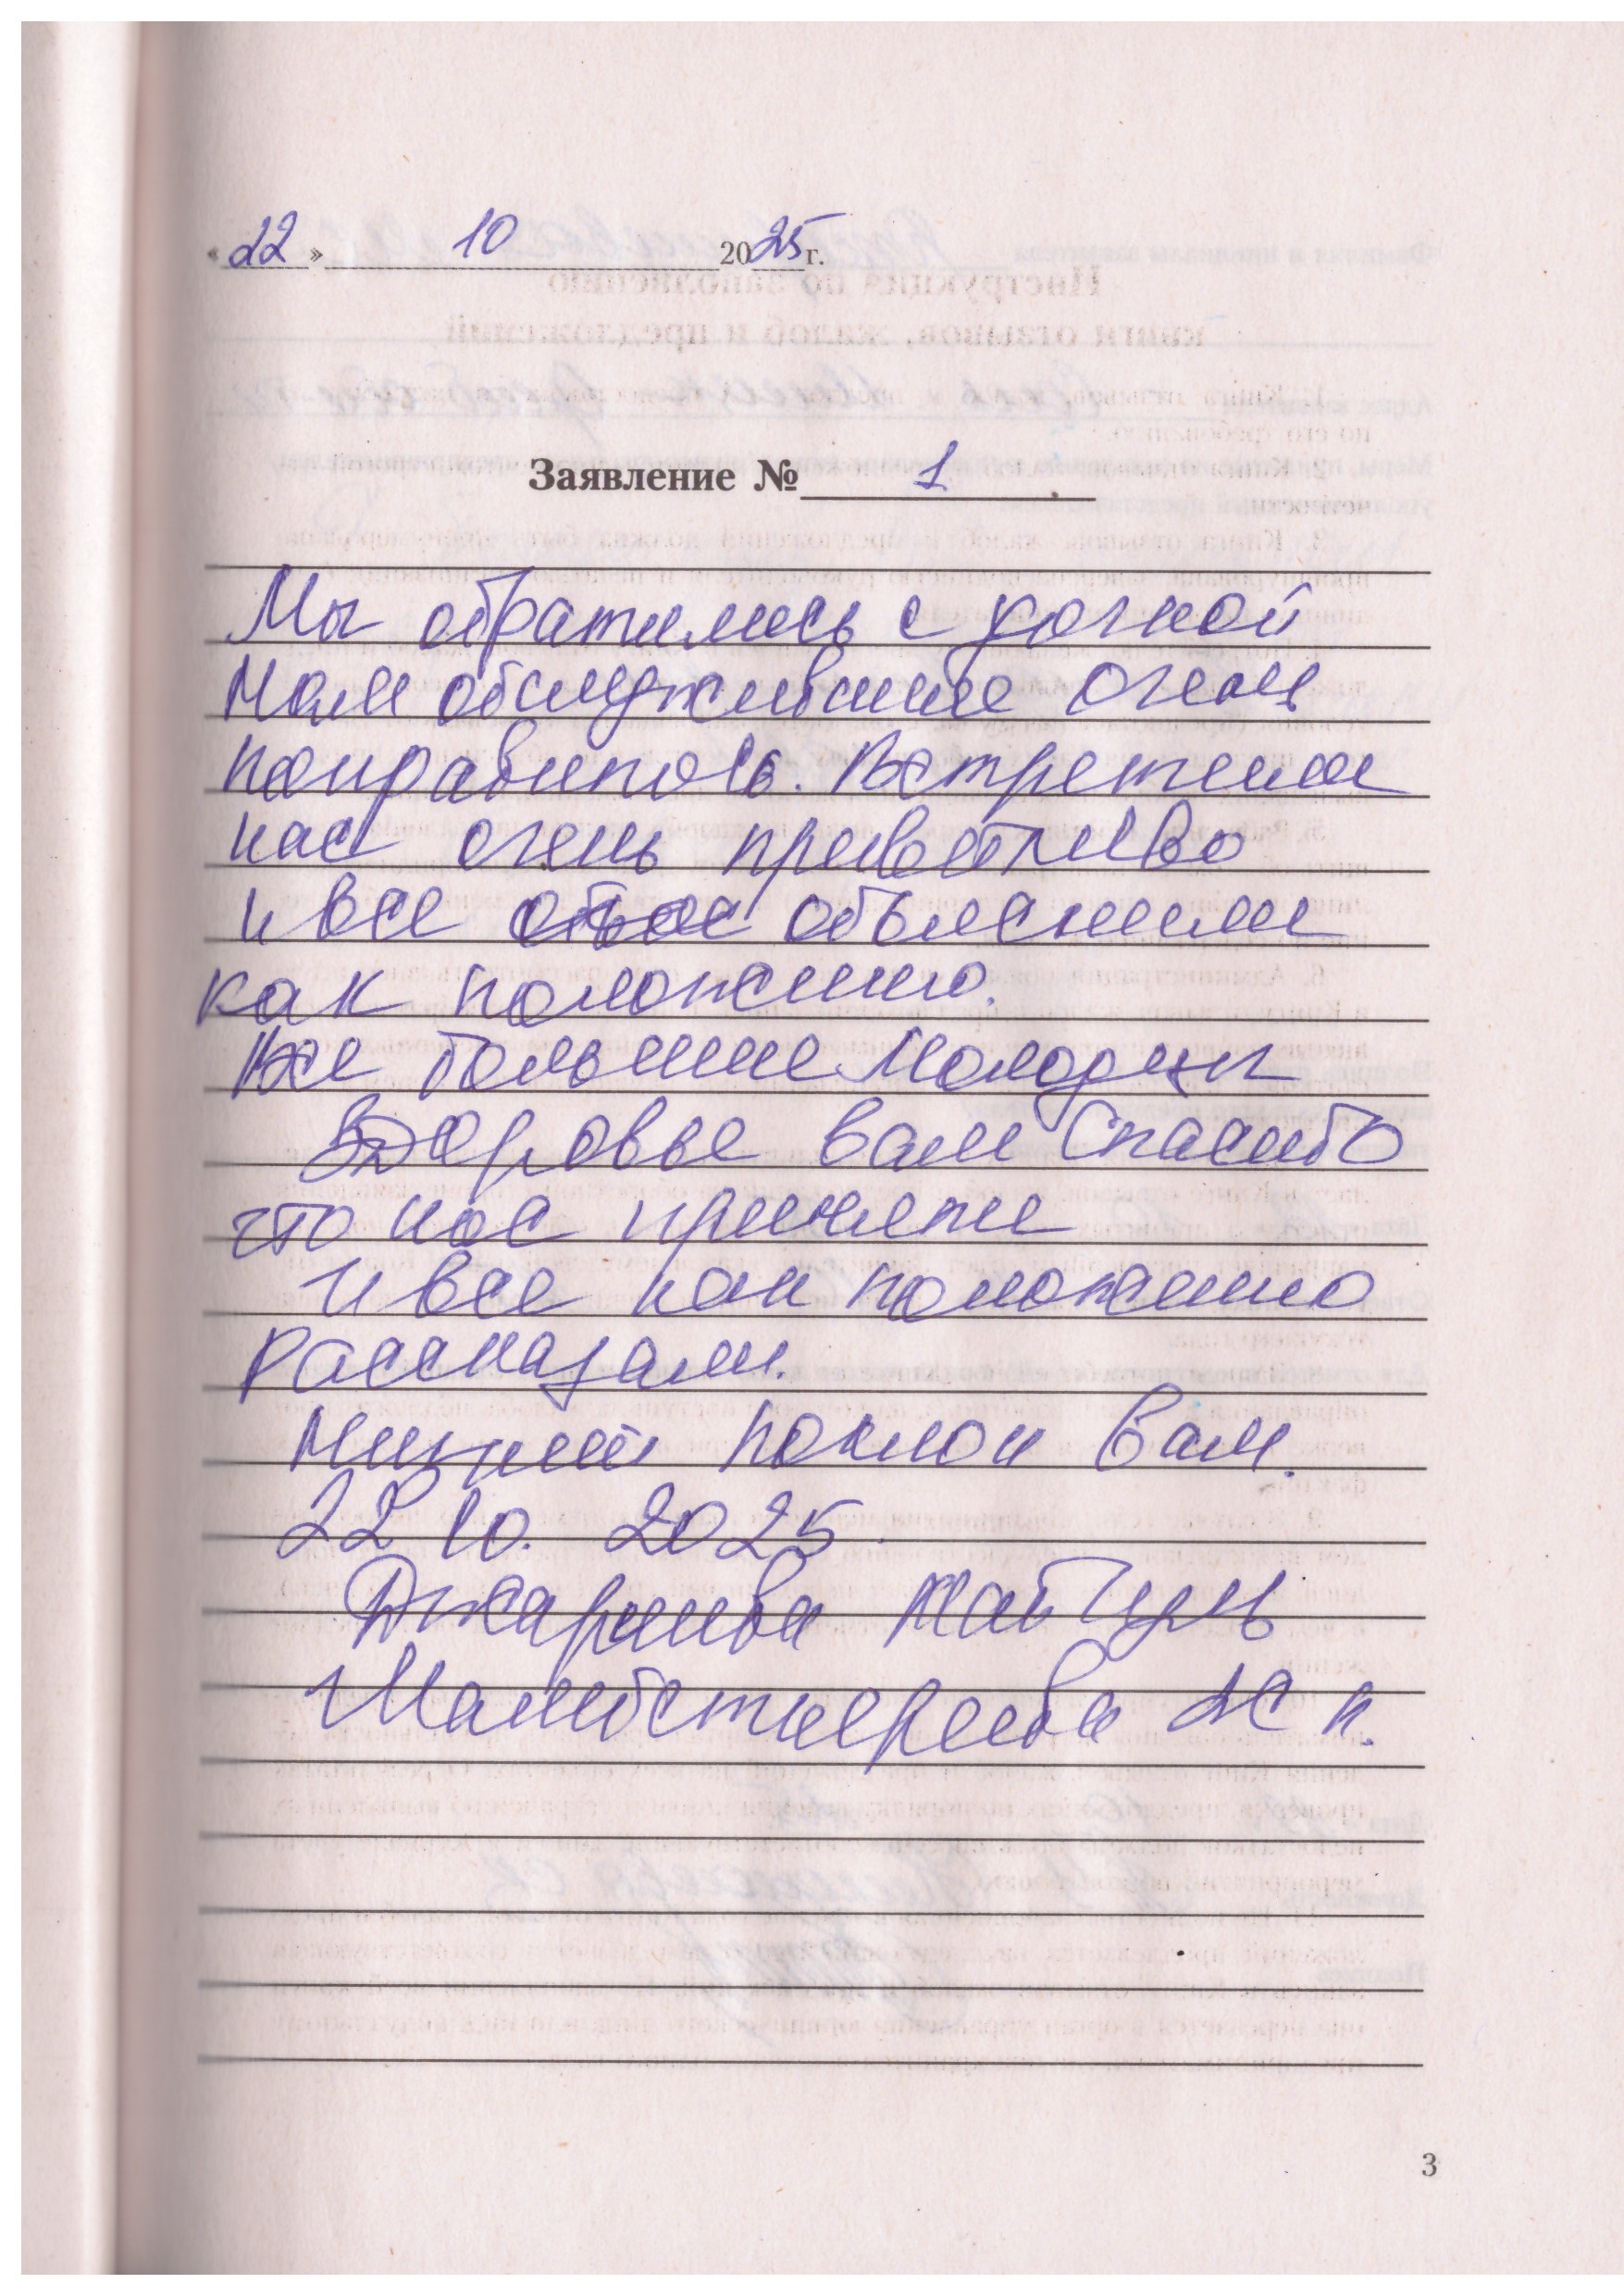 «22» 10 2025 г.
Заявление № 1
Мы обратились с дочкой
Нам обслуживание очень
понравилось. Встретили
нас очень приветливо
и все объяснили
как положено.
Все большие молодцы
Здоровье вам Спасибо
что нас приняли
И все как положено
рассказали.
Низкий поклон Вам.
22 10. 2025
3